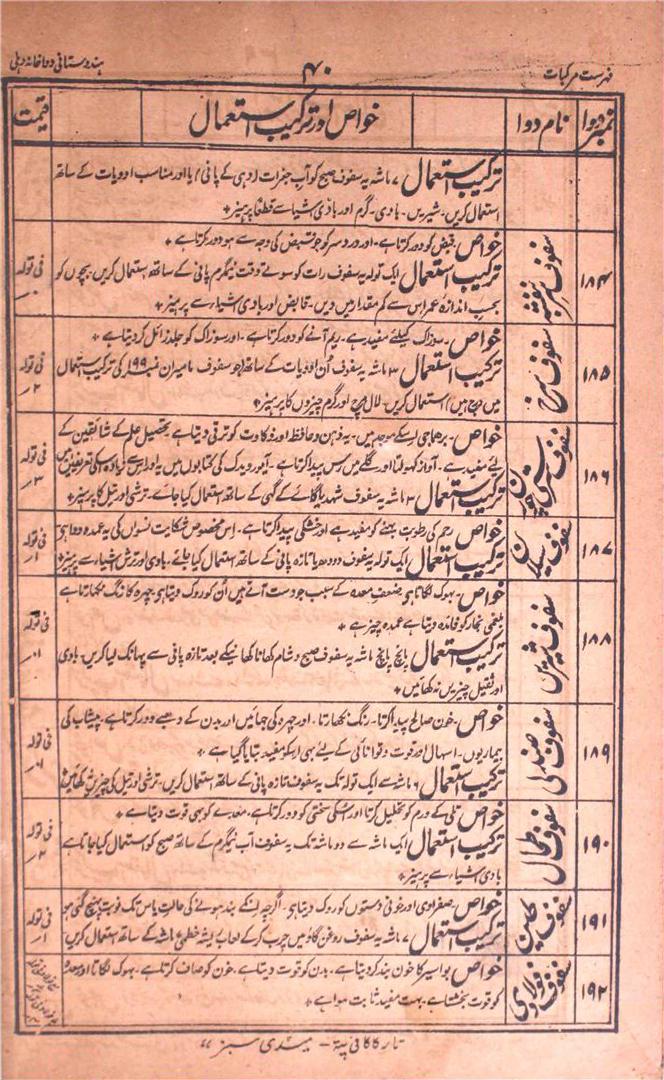 فہرست مرکبات ۴۰ ہندوستانی دواخانہ دہلی
نمبر دوا نام دوا خواص اور ترکیب استعمال قیمت
ترکیب استعمال ۷ ماشہ یہ سفوف صبح کو آب جغرات (دہی کے پانی) یا اور مناسب ادویات کے ساتھ
استعمال کریں۔ شیریں۔ بادی۔ گرم اور بادی اشیا سے قطعاً پرہیز +
۱۸۴ سفوف سر بنفشہ خواص۔ قبض کو دور کرتا ہے۔ اور درد سر کو جو قبض کی وجہ سے ہو دور کرتا ہے +
ترکیب استعمال ایک تولہ یہ سفوف رات کو سوتے وقت نیمگرم پانی کے ساتھ استعمال کریں۔ بچوں کو فی تولہ
بحسب اندازہ عمر اس سے کم مقدار میں دیں۔ قابض اور بادی اشیاء سے پرہیز +
۱۸۵ سفوف سرخ خواص۔ سوزاک کیلئے مفید ہے۔ پیپ آنے کو دور کرتا ہے۔ اور سوزاک کو جلد زائل کر دیتا ہے +
ترکیب استعمال ۳ ماشہ یہ سفوف اُن ادویات کے ساتھ (جو سفوف مامیران نمبر ۱۹۹ کی ترکیب استعمال فی تولہ ۲
میں درج ہیں) استعمال کریں۔ لال مرچ اور گرم چیزوں کا پرہیز +
۱۸۶ سفوف سرستی چورن خواص۔ برہما جی اسکے موجد ہیں۔ یہ ذہن و حافظہ اور ذکاوت کو ترقی دیتا ہے۔ تحصیل علم کے شائقین کے
لئے مفید ہے۔ آواز کھولتا اور گلے میں رس پیدا کرتا ہے۔ آیور ویدک کی کتابوں میں یہ اور اس سے زیادہ اسکی تعریفیں ہیں فی تولہ ۳
ترکیب استعمال ۳ ماشہ یہ سفوف شہد یا گائے کے گھی کے ساتھ استعمال کیا جائے۔ ترشی اور تیل کا پرہیز +
۱۸۷ سفوف سیلان خواص۔ رحم کی رطوبت بہنے کو مفید ہے اور خشکی پیدا کرتا ہے۔ اس مخصوص شکایت نسوں کی یہ عمدہ دوا ہے فی تولہ
ترکیب استعمال ایک تولہ یہ سفوف دودھ یا تازہ پانی کے ساتھ استعمال کیا جائے۔ بادی اور ترش اشیاء سے پرہیز + ۱
۱۸۸ سفوف شیریں خواص۔ بھوک لگاتا ہے، ضعف معدہ کے سبب جو دست آتے ہیں اُن کو روک دیتا ہے، چہرہ کا رنگ نکھارتا ہے
بلغمی بخار کو فائدہ دیتا ہے عمدہ چیز ہے + فی تولہ
ترکیب استعمال پانچ پانچ ماشہ یہ سفوف صبح و شام کھانا کھانیکے بعد تازہ پانی سے پھانک لیا کریں۔ بادی
اور ثقیل چیزیں نہ کھائیں +
۱۸۹ سفوف صندلی خواص۔ خون صالح پیدا کرتا۔ رنگ نکھارتا۔ اور چہرہ کی جھائیں اور بدن کے دھبے دور کرتا ہے۔ پیشاب کی
بیماریوں۔ اسہال اور قوت و توانائی کے لیے بھی اسکو مفید بتایا گیا ہے + فی تولہ
ترکیب استعمال ۶ ماشہ سے ایک تولہ تک یہ سفوف تازہ پانی کے ساتھ استعمال کریں۔ ترشی اور تیل کی چیزیں نہ کھائیں +
۱۹۰ سفوف طحال خواص۔ تلی کے ورم کو تحلیل کرتا اور اسکی سختی کو دور کرتا ہے، معدے کو بھی قوت دیتا ہے +
ترکیب استعمال ایک ماشہ سے دو ماشہ تک یہ سفوف آب نیمگرم کے ساتھ صبح کو استعمال کیا جاتا ہے فی تولہ ۲
بادی اشیاء سے پرہیز +
۱۹۱ سفوف خواص۔ صفراوی اور خونی دستوں کو روک دیتا ہے۔ اگرچہ انکے بند ہونے کی حالت یاس تک نوبت پہنچ گئی ہو فی تولہ
ترکیب استعمال ۷ ماشہ یہ سفوف روغن گاؤ میں چرب کر کے لعاب ریشہ خطمی ۷ ماشہ کے ساتھ استعمال کریں ۱
۱۹۲ سفوف فولادی خواص۔ بواسیر کا خون بند کر دیتا ہے۔ بدن کو قوت دیتا ہے، خون کو صاف کرتا ہے۔ بھوک لگاتا اور معدہ
کو قوت بخشتا ہے۔ بہت مفید ثابت ہوا ہے +
تار کا کافی پتہ - میڈی سنز ״